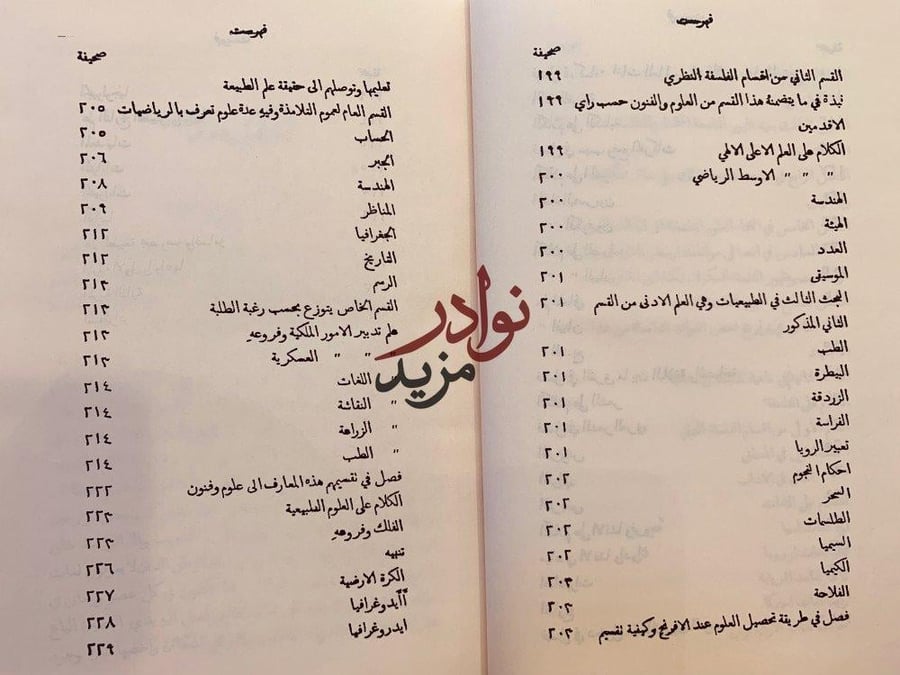 فهرست
صحيفة
القسم الثاني من اقسام الفلسفة النظري ١٩٩
نبذة في ما يتضمنة هذا القسم من العلوم والفنون حسب راي ١٩٩
الاقدمين
الكلام على العلم الاعلى الالهي ١٩٩
" " " الاوسط الرياضي ٢٠٠
الهندسة ٢٠٠
الهيئة ٢٠٠
العدد ٢٠٠
الموسيقى ٢٠١
المبحث الثالث في الطبيعيات وهي العلم الادنى من القسم ٢٠١
الثاني المذكور
الطب ٢٠١
البيطرة ٢٠١
الزردقة ٢٠١
الفراسة ٢٠١
تعبير الرويا ٢٠١
احكام النجوم ٢٠٢
السحر ٢٠٢
الطلسمات ٢٠٢
السيميا ٢٠٢
الكيميا ٢٠٣
الفلاحة ٢٠٣
فصل في طريقة تحصيل العلوم عند الافرنج وكيفية تقسيم ٢٠٣
فهرست
صحيفة
تعليمها وتوصلهم الى حقيقة علم الطبيعة
القسم العام لعموم التلامذة وفيهِ عدة علوم تعرف بالرياضيات ٢٠٥
الحساب ٢٠٥
الجبر ٢٠٦
الهندسة ٢٠٨
المناظر ٢٠٩
الجغرافيا ٢١٢
التاريخ ٢١٢
الرسم ٢١٣
القسم الخاص يتوزع بحسب رغبة الطلبة ٢١٣
علم تدبير الامور الملكية وفروعهِ ٢١٣
" " " العسكرية ٢١٣
" اللغات ٢١٤
" النقاشة ٢١٤
" الزراعة ٢١٤
" الطب ٢١٤
فصل في تقسيمهم هذه المعارف الى علوم وفنون ٢٢٢
الكلام على العلوم الطبيعية ٢٢٣
الفلك وفروعهِ ٢٢٣
تنبيه ٢٢٦
الكرة الارضية ٢٢٧
أآيدوغرافيا ٢٢٨
ايدروغرافيا ٢٢٩
نوادر
مزيد